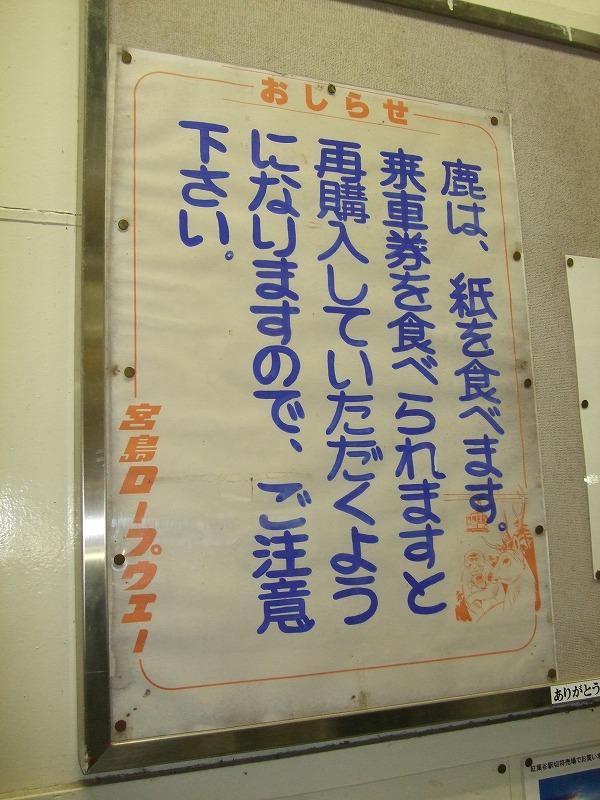 おしらせ
鹿は、紙を食べます。
乗車券を食べられますと
再購入していただくよう
になりますので、ご注意
下さい。
宮島ロープウエー
ありがとう
紅葉谷駅切符売場でお買い